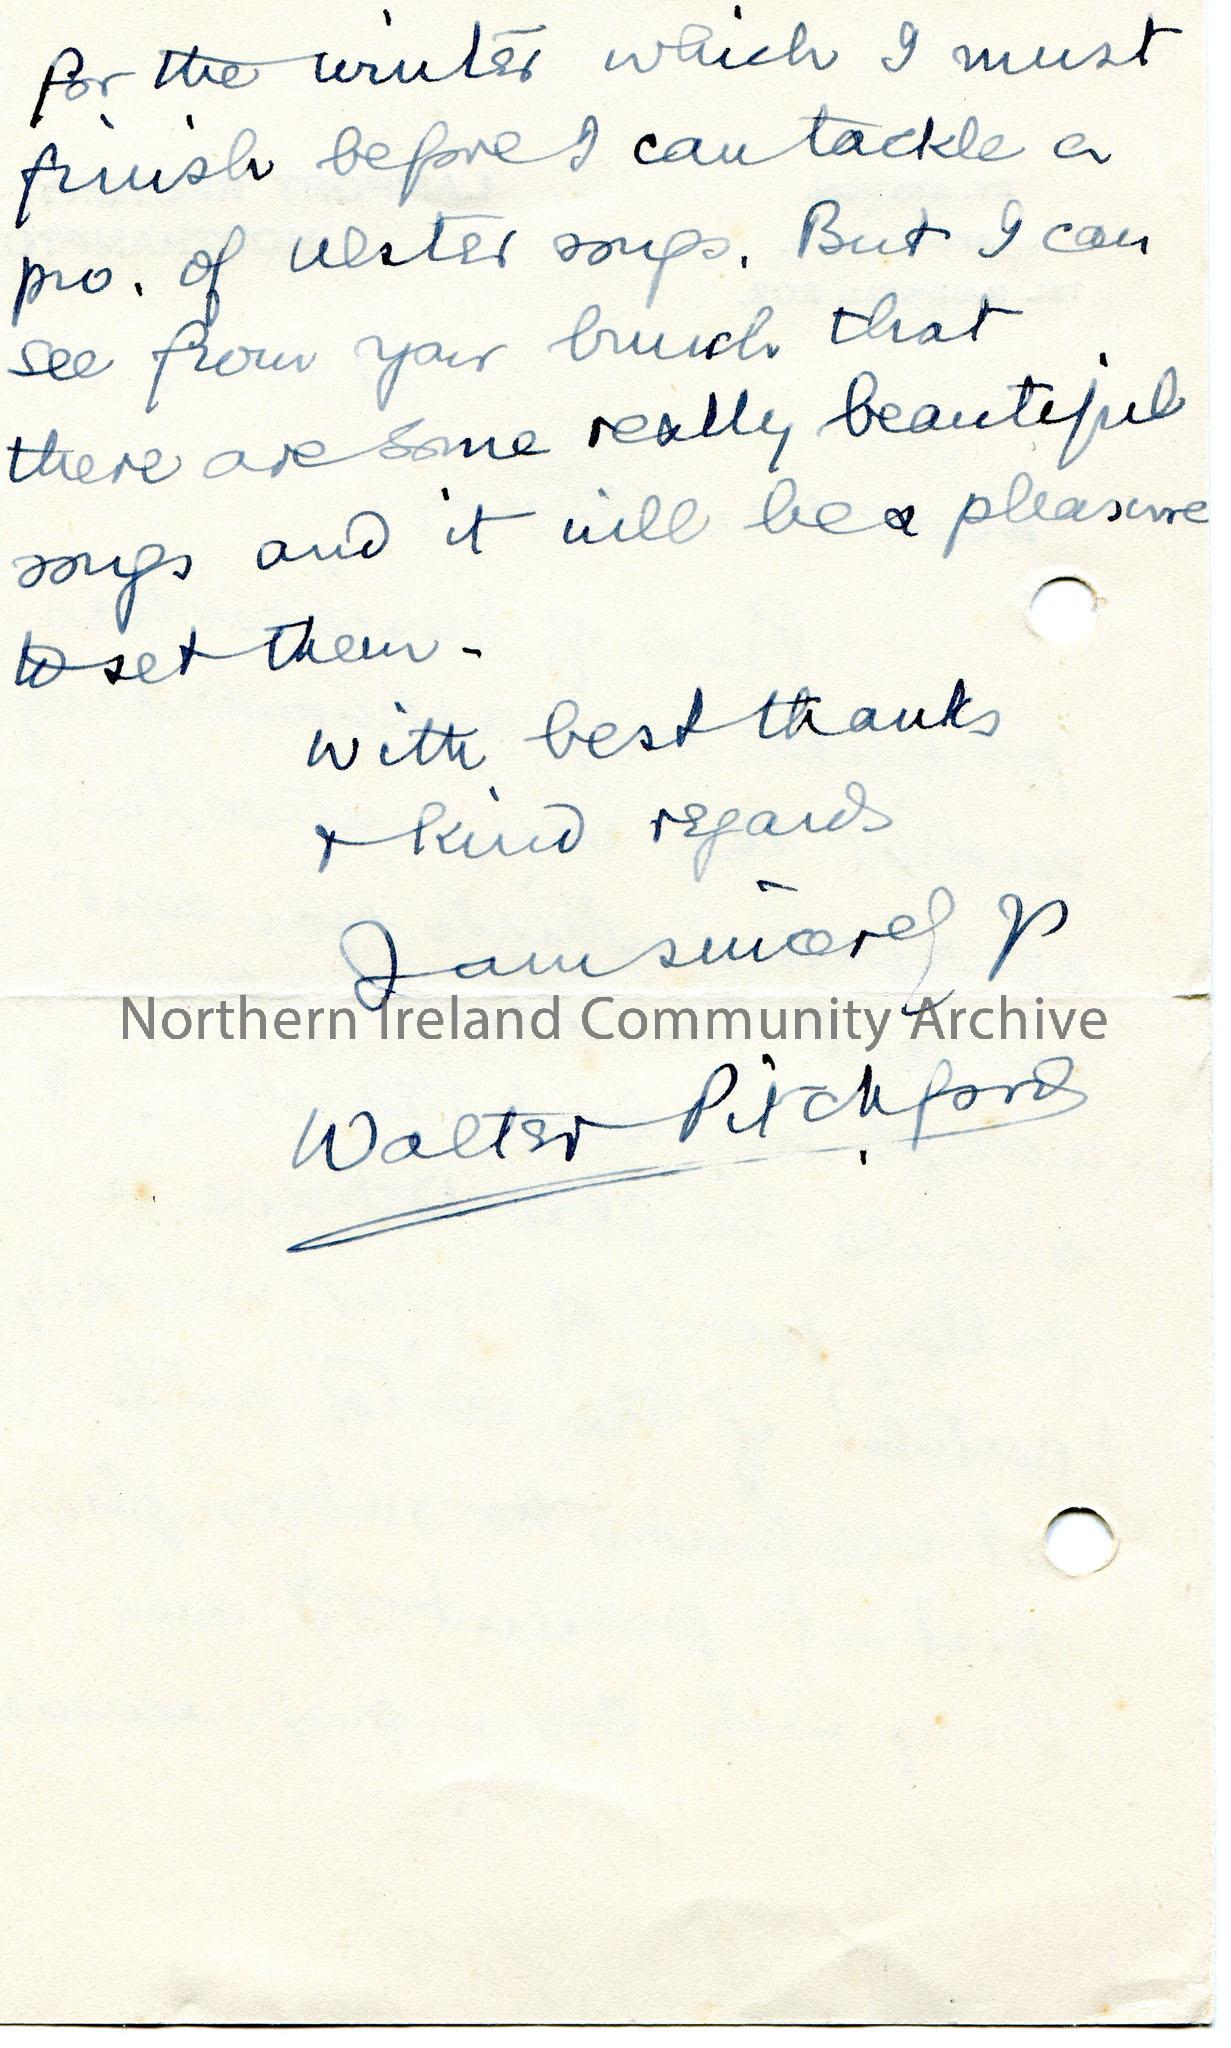 for the winter which I must
finish before I can tackle a
pro. of Ulster songs. But I can
see from your bunch that
there are some really beautiful
songs and it will be a pleasure
to set them -
With best thanks
+ kind regards
I am sincerely yrs
Northern Ireland Community Archive
Walter Pitchford